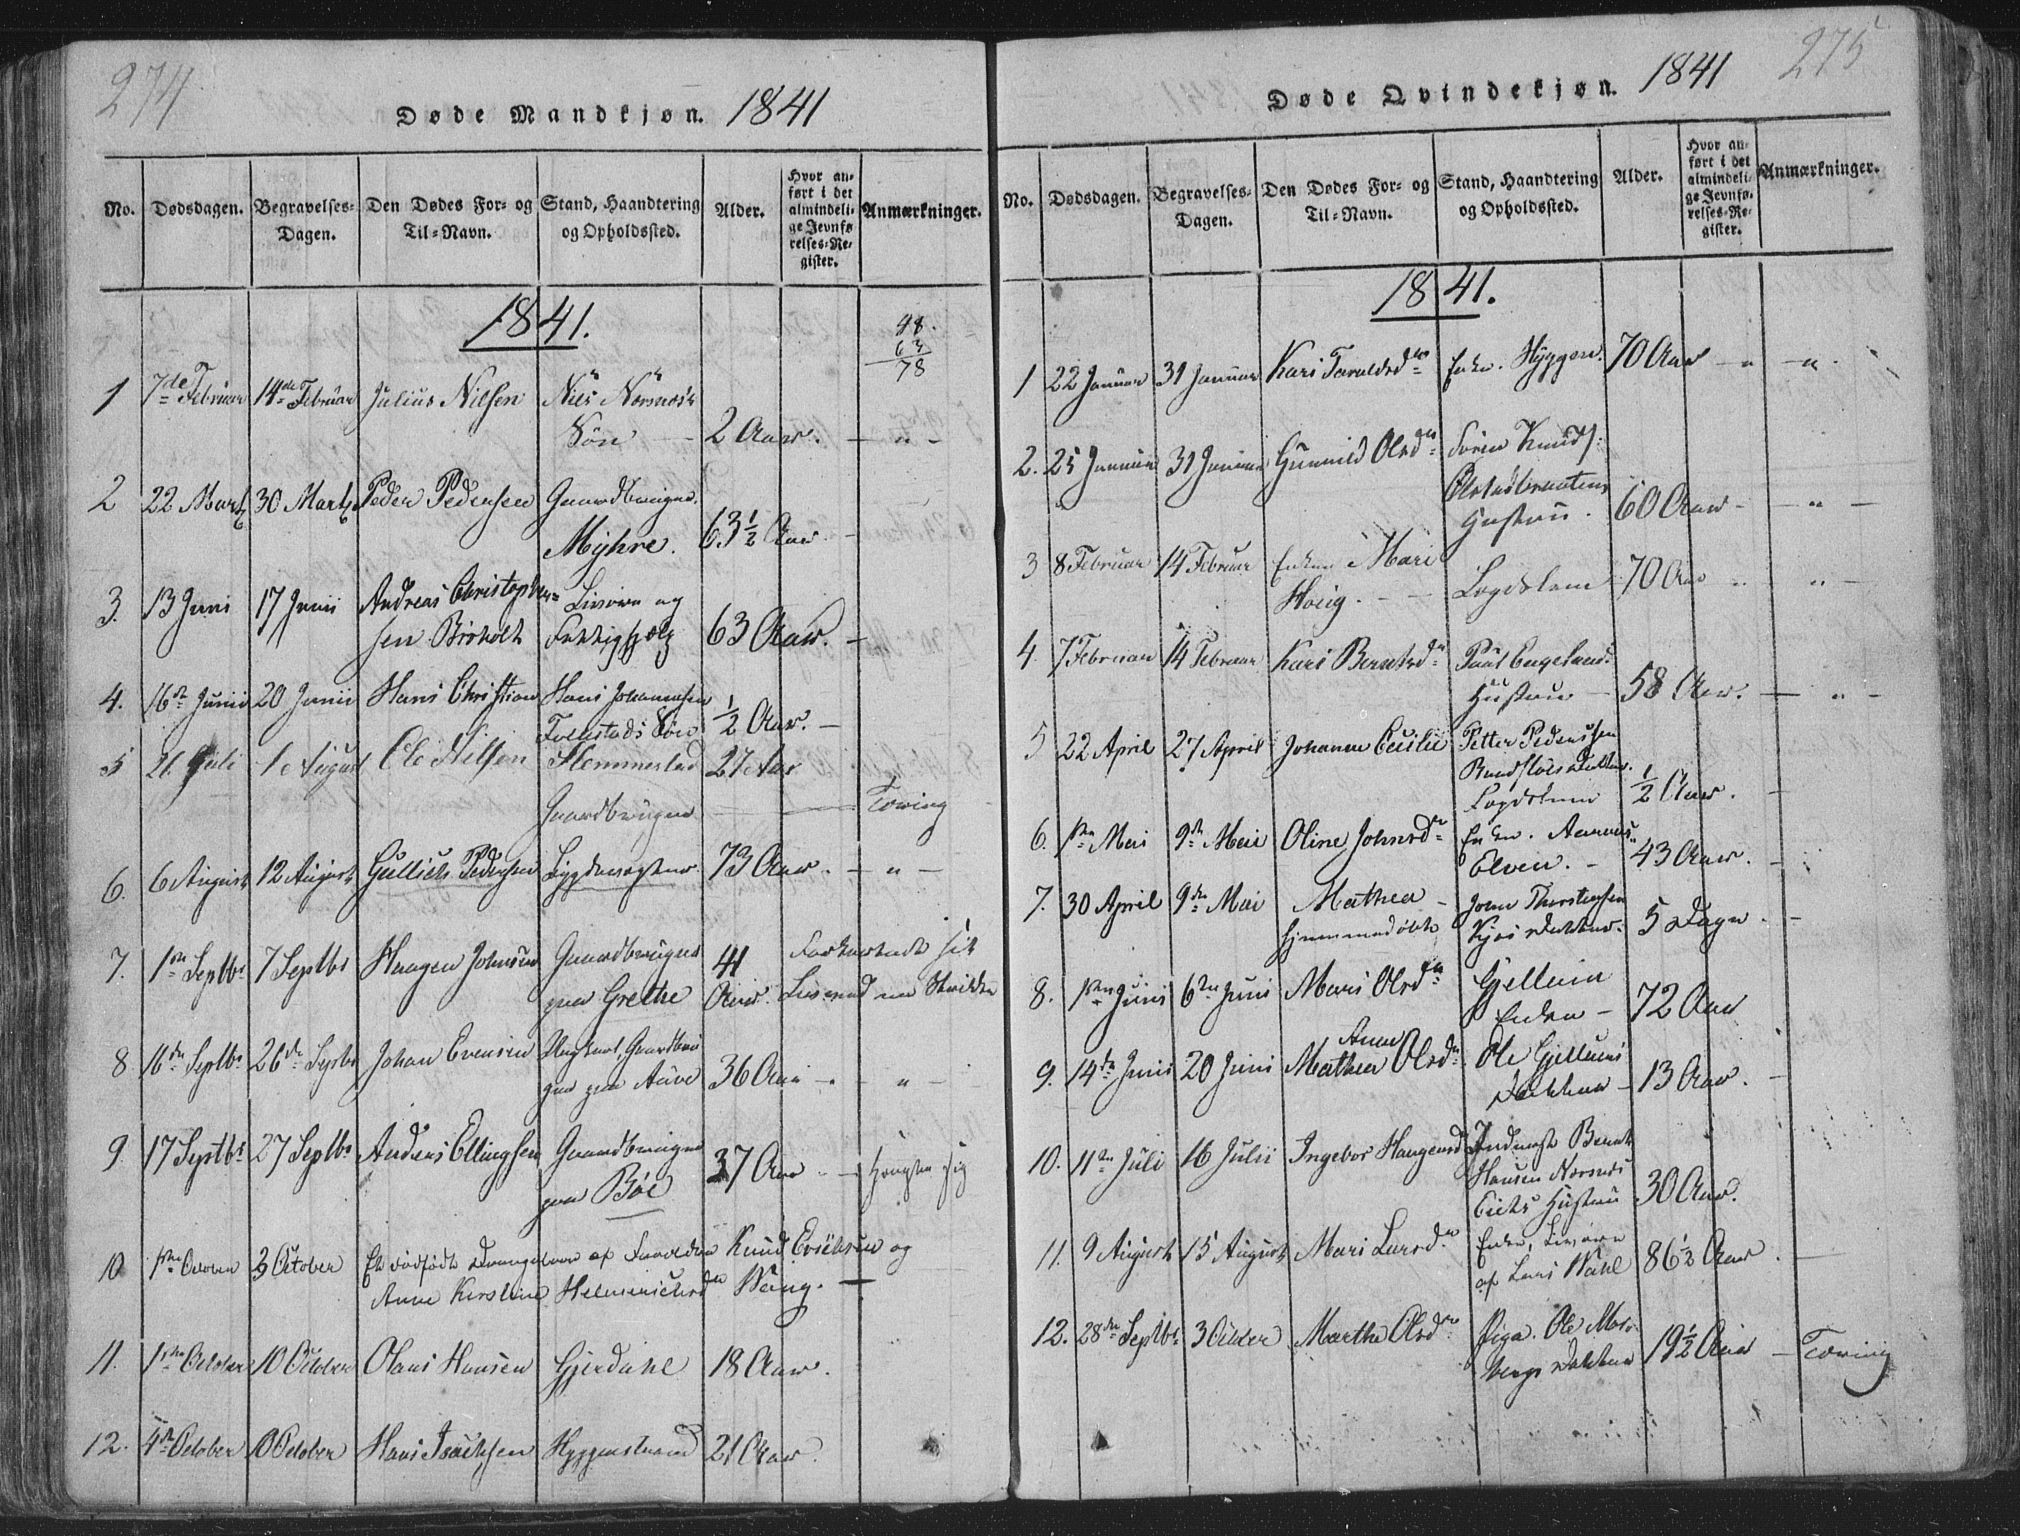 274
Døde Mandkjøn. 1841
No. Dødsdagen. Begravelses-Dagen. Den Dødes For- og Til-Navn. Stand, Haandtering og Opholdssted. Alder. Hvor anført i det almindelige Jevnførelses-Register. Anmærkninger.
1841.
48.
63
78
1 7de Februar 14de Februar Julius Nilsen Niels Næsnæs's
Søn 2 Aar. - " -
2 22 Marts 30 Marts Peder Pedersen Gaardbruger
Myhre. 63½ Aar. -
3. 13 Juni 17 Junii Andreas Christopher=
sen Birkholt 63 Aar. -
4. 16de Junii 20 Junii Hans Christian Hans Johannesen
Søn ½ Aar. -
5 21 Juli 1 August Ole Nilsen Hemmestad 27 Aar
Gaardbruger Tæring
6. 6 August 12 August Gullich Pedersen 73 Aar. - " -
7. 1ste Septbr 7 Septbr Haagen Johnsen Gaardbruger 41
paa Grethe Aar.
8 16de Septbr 26de Septbr Johan Evensen Ungkarl, Gaardbru
ger paa 36 Aar - " -
9. 17 Septbr 27 Septbr Anders Ellingsen Gaardbruger
paa Böe 37 Aar - hængte sig
10 1ste October 3 October Et dødfødt Drengebarn af Forældre Knud Erichsen og
Anne Kirstine Helmerichsdr
11. 1ste October 10 October Olaus Hansen Gjerdahl 18 Aar.
12. 4de October 10 October Hans Isachsen Hyggenstrand 21 Aar.
275
Døde Qvindekjøn. 1841
No. Dødsdagen. Begravelses-Dagen. Den Dødes For- og Til-Navn. Stand, Haandtering og Opholdssted. Alder. Hvor anført i det almindelige Jevnførelses-Register. Anmærkninger.
1841.
1 22 Januar 31 Januar Kari Taraldsdr Enke. Hyggen. 70 Aar - " - "
2. 25 Januar 31 Januar Gunnild Olsdr Søren Knuds:
Hustru. 60 Aar - - " -
3 8 Februar 14 Februar Enken Mari
Houg. - - Logdslem 70 Aar " " -
4. 7 Februar 14 Februar Kari Berntsdr Paul Engelands
Hustrue - 58 Aar. - " -
5 22 April 27 April Johanne Cecilie Petter Pedersen
½ Aar. -
6. 1ste Mai 9de Mai Oline Johnsdr Enke. Aaraas
Elven. - 43 Aar. -
7. 30 April 9de Mai Mathea -
hjemmedøbt Datter. 5 Dage. -
8. 1ste Juni 6te Juni Mari Olsdr Gjellum
Enke - 72 Aar
9. 14de Juni 20 Juni Anne
Mathea Olsdr Ole Gjellums
Datter - 13 Aar. -
10. 11te Juli 16 Julii Ingebor Haagensdr Inderst Bernt
Hansen Næsnæs
Eiets Hustru 30 Aar.
11. 9 August 15 August Mari Larsdr Enke, Livøre
af Lars Wahl 86½ Aar. -
12. 28de Septbr 3 October Marthe Olsdr Pige. Ole Mor-
bergs Datter 19½ Aar - Tæring